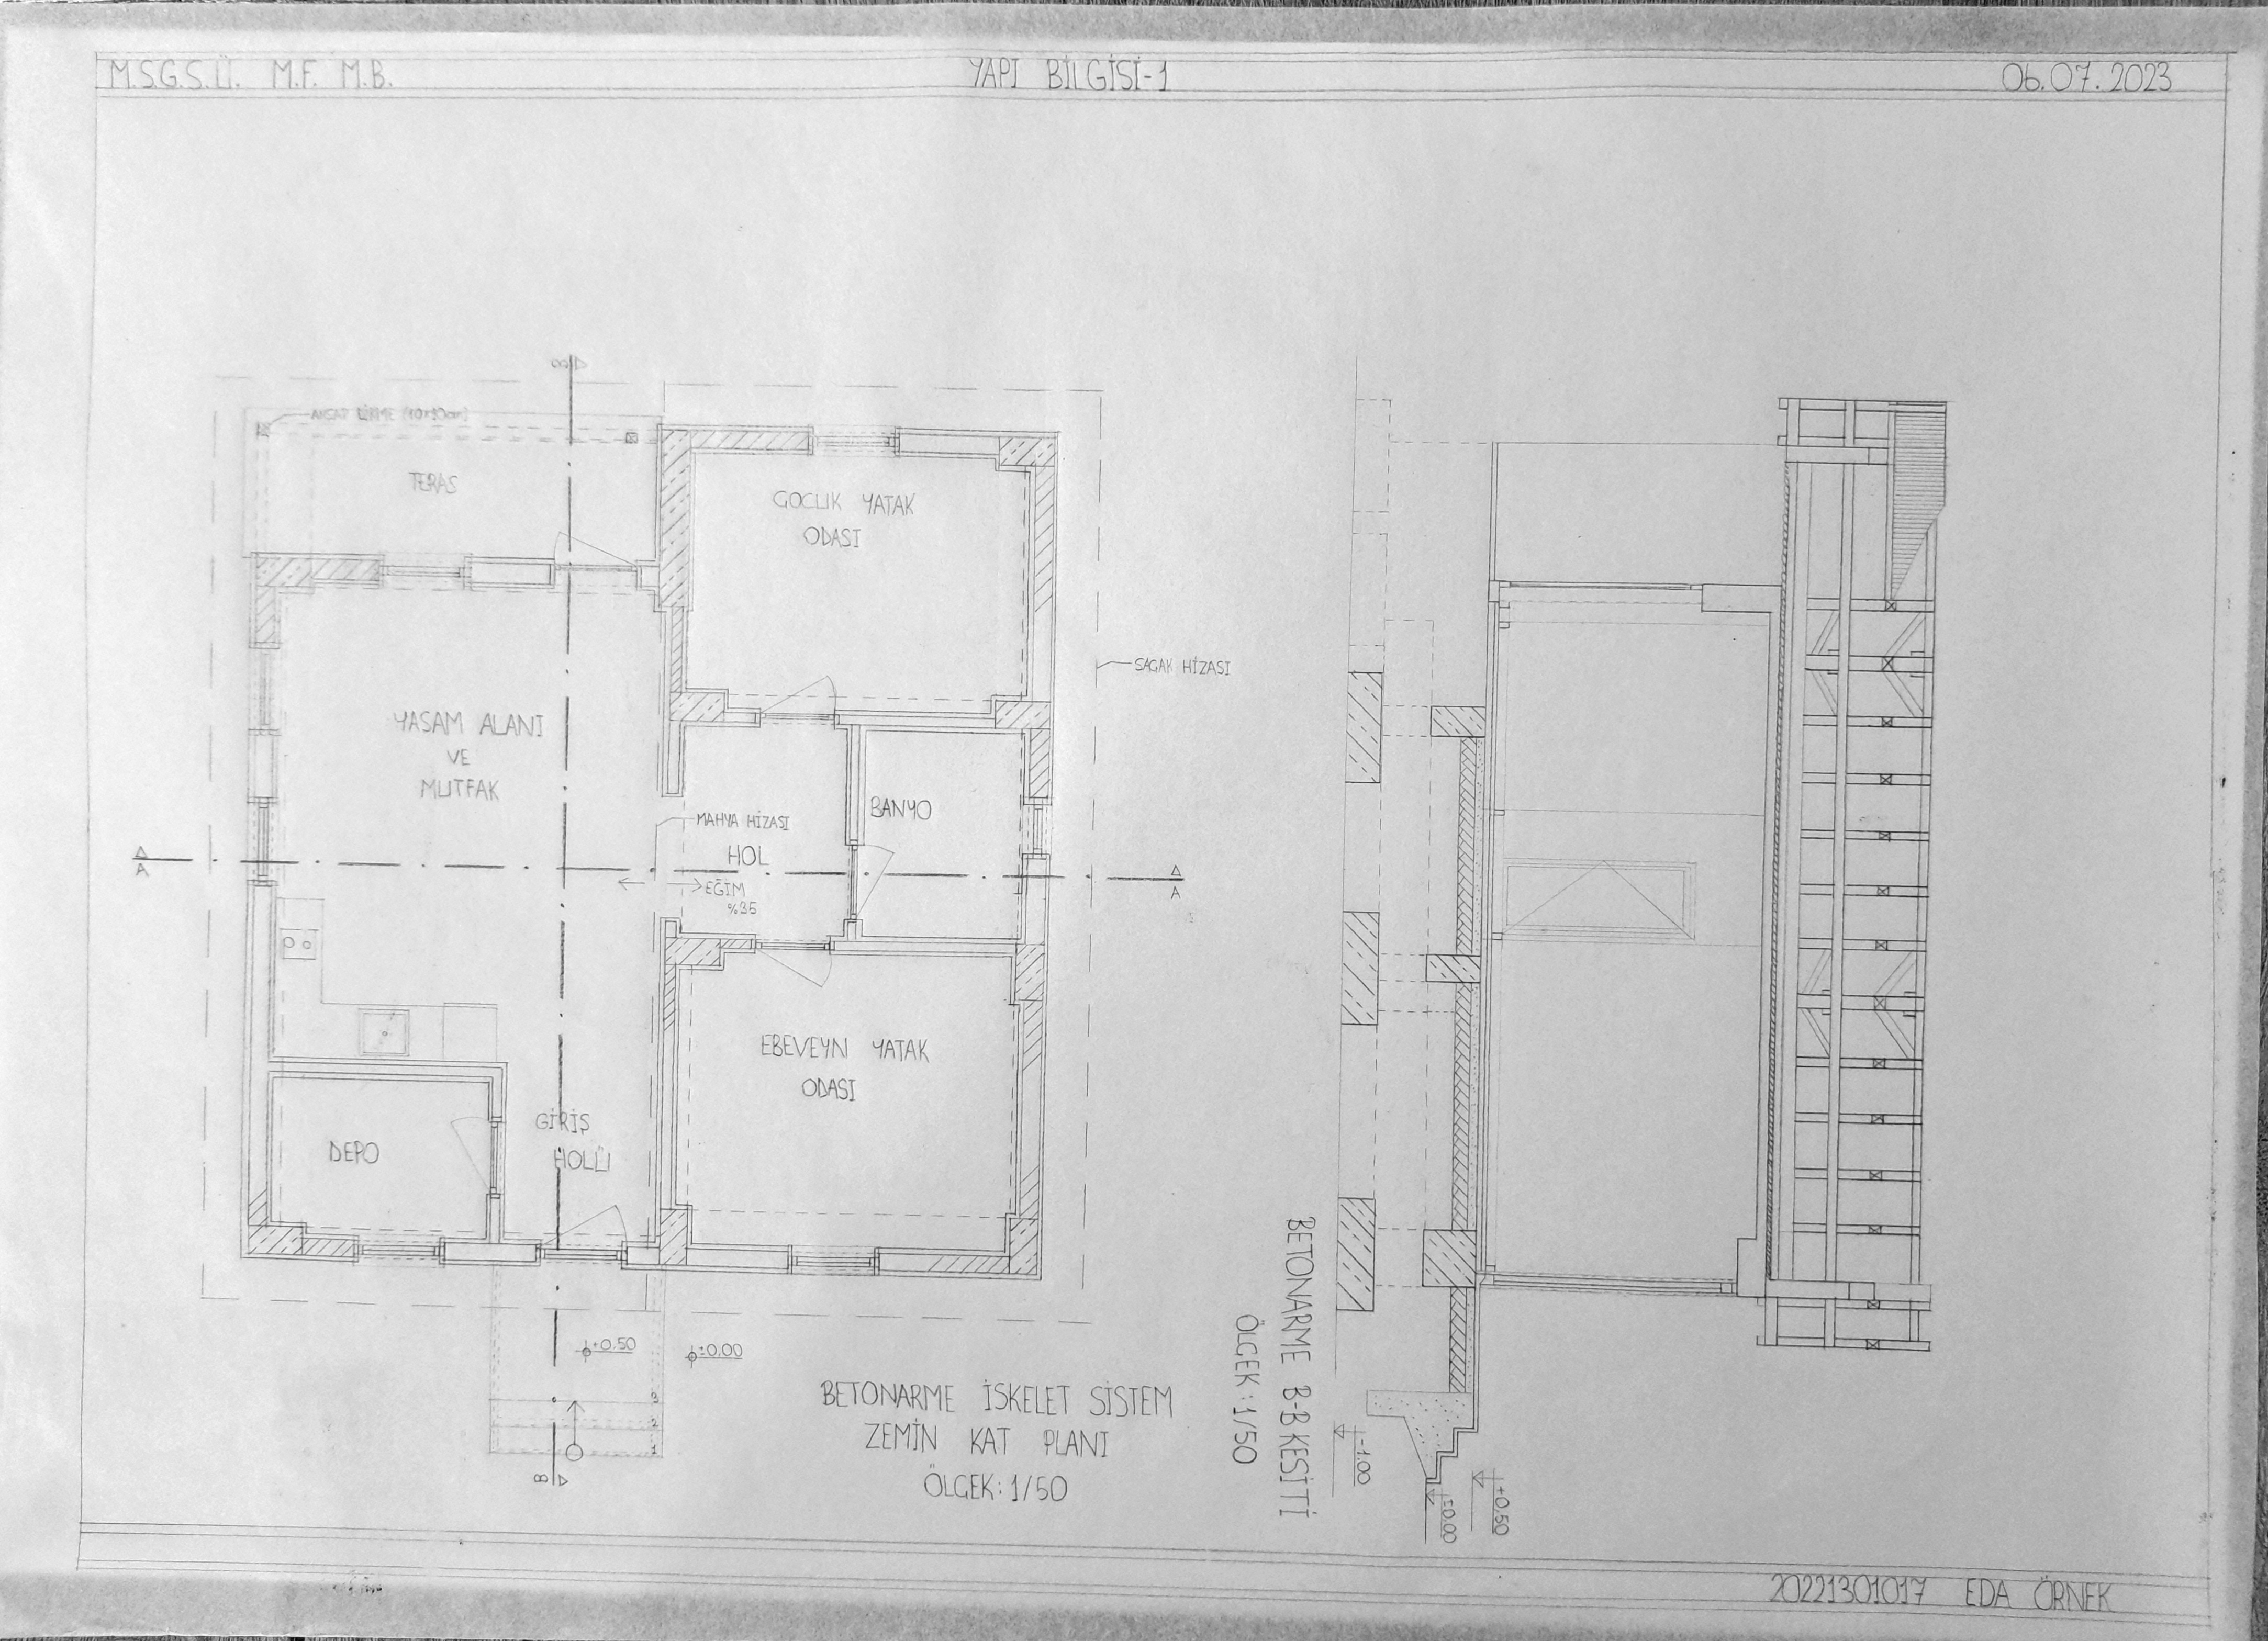 M.S.G.S.Ü. M.F. M.B.
YAPI BİLGİSİ-1
06.07.2023
B
AHŞAP DİKME (10x10cm)
TERAS
GOCUK YATAK
ODASI
SAGAK HİZASI
YASAM ALANI
VE
MUTFAK
MAHYA HİZASI
HOL
EĞİM
%35
BANYO
A
A
EBEVEYN YATAK
ODASI
DEPO
GİRİŞ
HOLÜ
+0.50
±0.00
3
2
1
B
BETONARME İSKELET SİSTEM
ZEMİN KAT PLANI
ÖLGEK: 1/50
BETONARME B-B KESİTİ
ÖLGEK: 1/50
-1.00
±0.00
+0.50
20221301017 EDA ÖRNEK